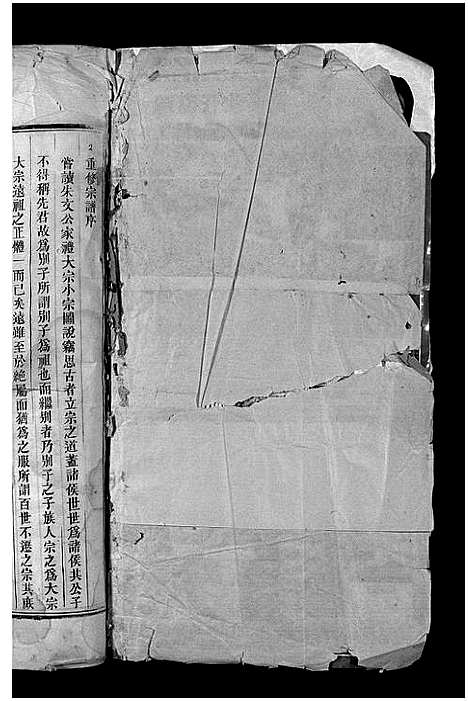 重修宗譜序
嘗讀朱文公家禮大宗小宗圖說竊思古者立宗之道蓋諸侯世世爲諸侯其公子
不得稱先君故爲別子所謂別子爲祖也而繼別者乃別子之子族人宗之爲大宗
大宗遠祖之正體一而已矣遠雖至於絶屬而猶爲之服所謂百世不遷之宗其庶